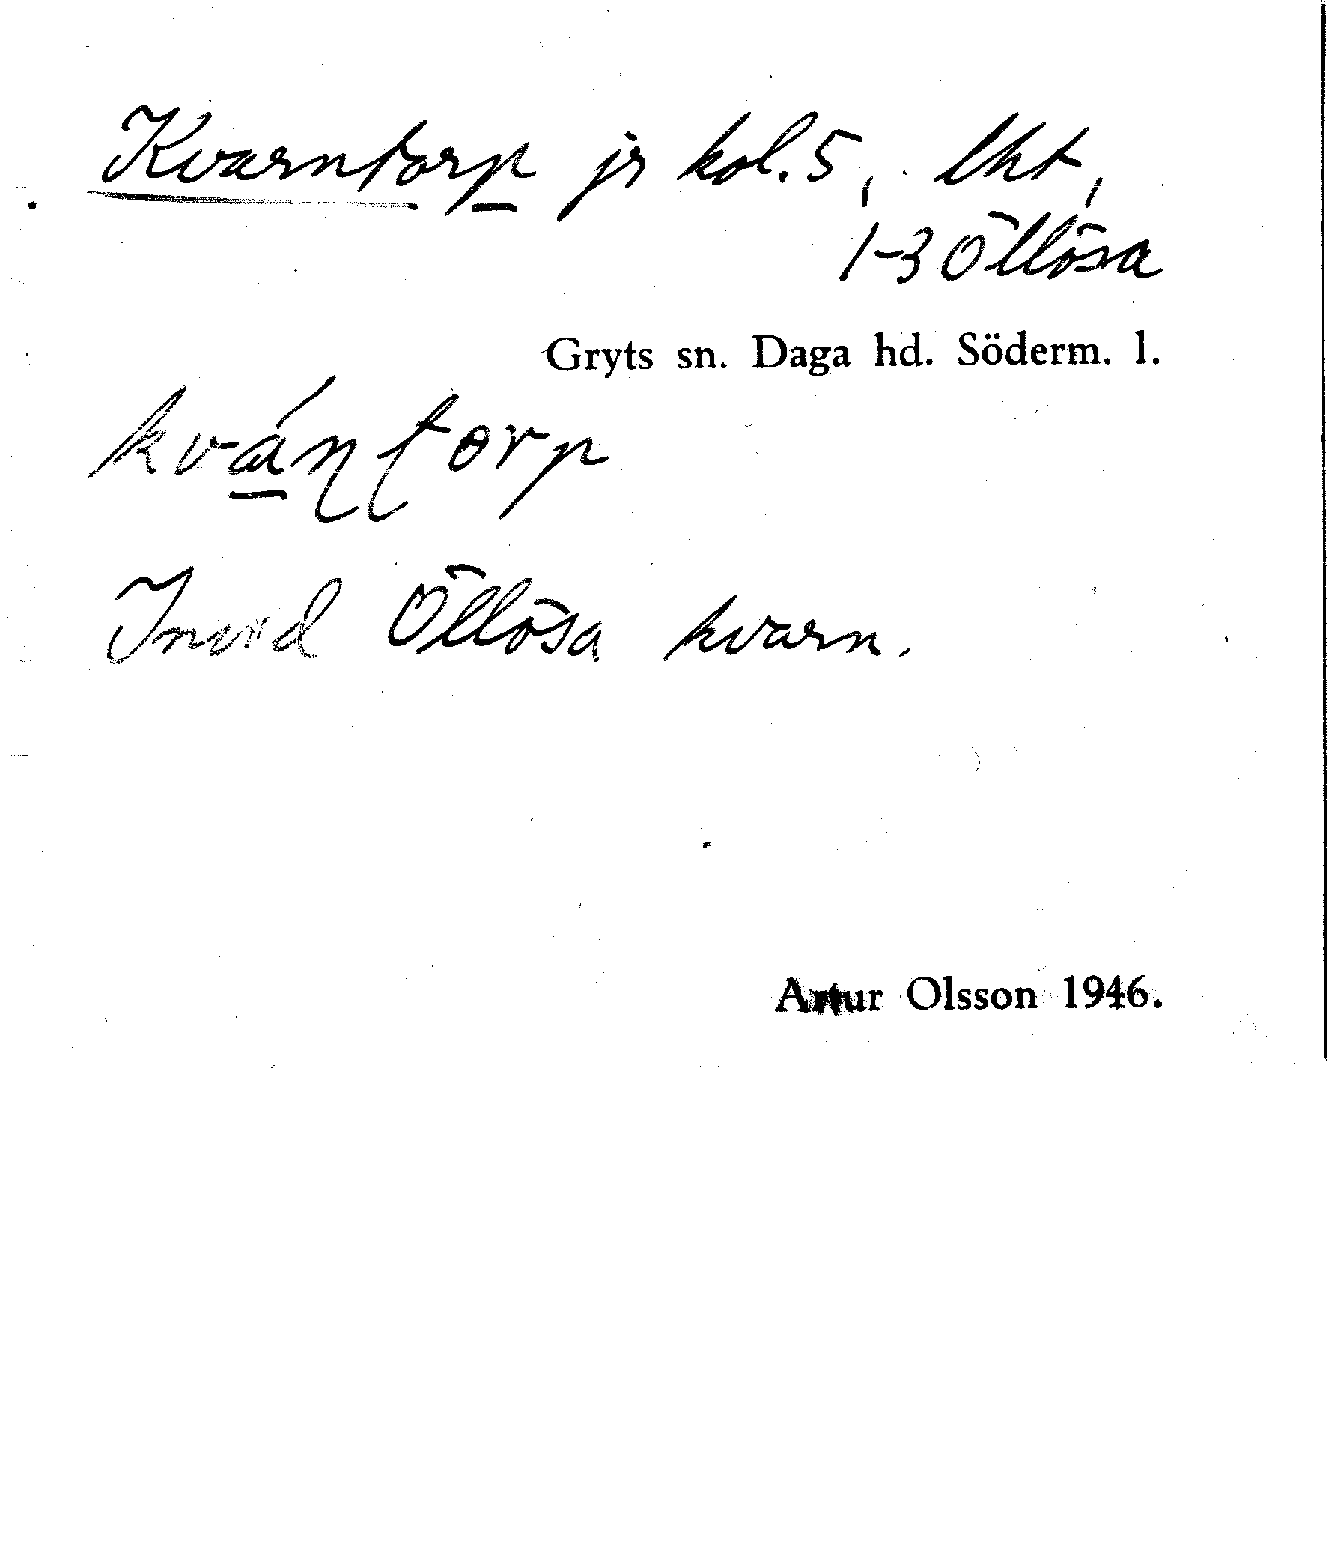 Kvarntorp jr kol. 5, lht,
1-3 Öllösa
Gryts sn. Daga hd. Söderm. l.
kvántorp
Invid Öllösa kvarn.
Artur Olsson 1946.